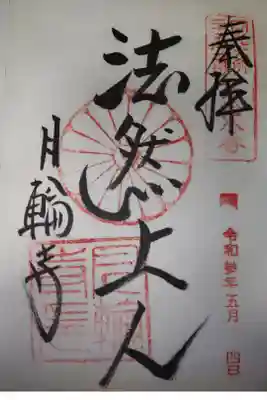 奉拝
法然上人
月輪寺
令和 年五月 四日